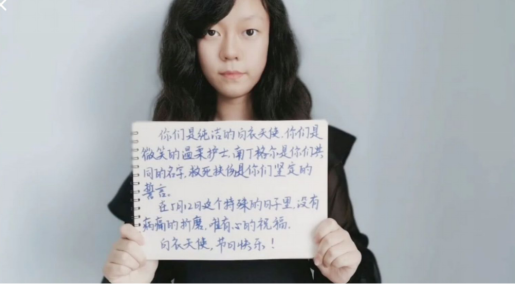 你们是纯洁的白衣天使,你们是
微笑的温柔护士,南丁格尔是你们共
同的名字,救死扶伤是你们坚定的
誓言。
在5月12日这个特殊的日子里,没有
病痛的折磨,唯有心的祝福。
白衣天使,节日快乐!